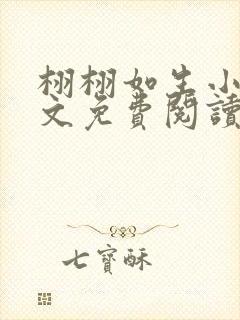 栩栩如生小
文免費閱讀
七寶酥